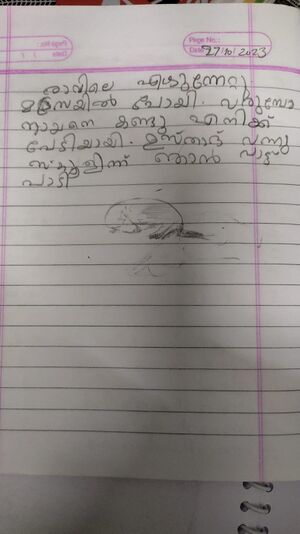 Page No.:
Date 27/10/2023
രാവിലെ എഴുന്നേറ്റു
മദ്രസയിൽ പോയി. വരുമ്പോ
നായനെ കണ്ടു എനിക്ക്
പേടിയായി. ഉസ്താദ് വന്നു
സ്കൂളിന്ന് ഞാൻ പാട്ട്
പാടി